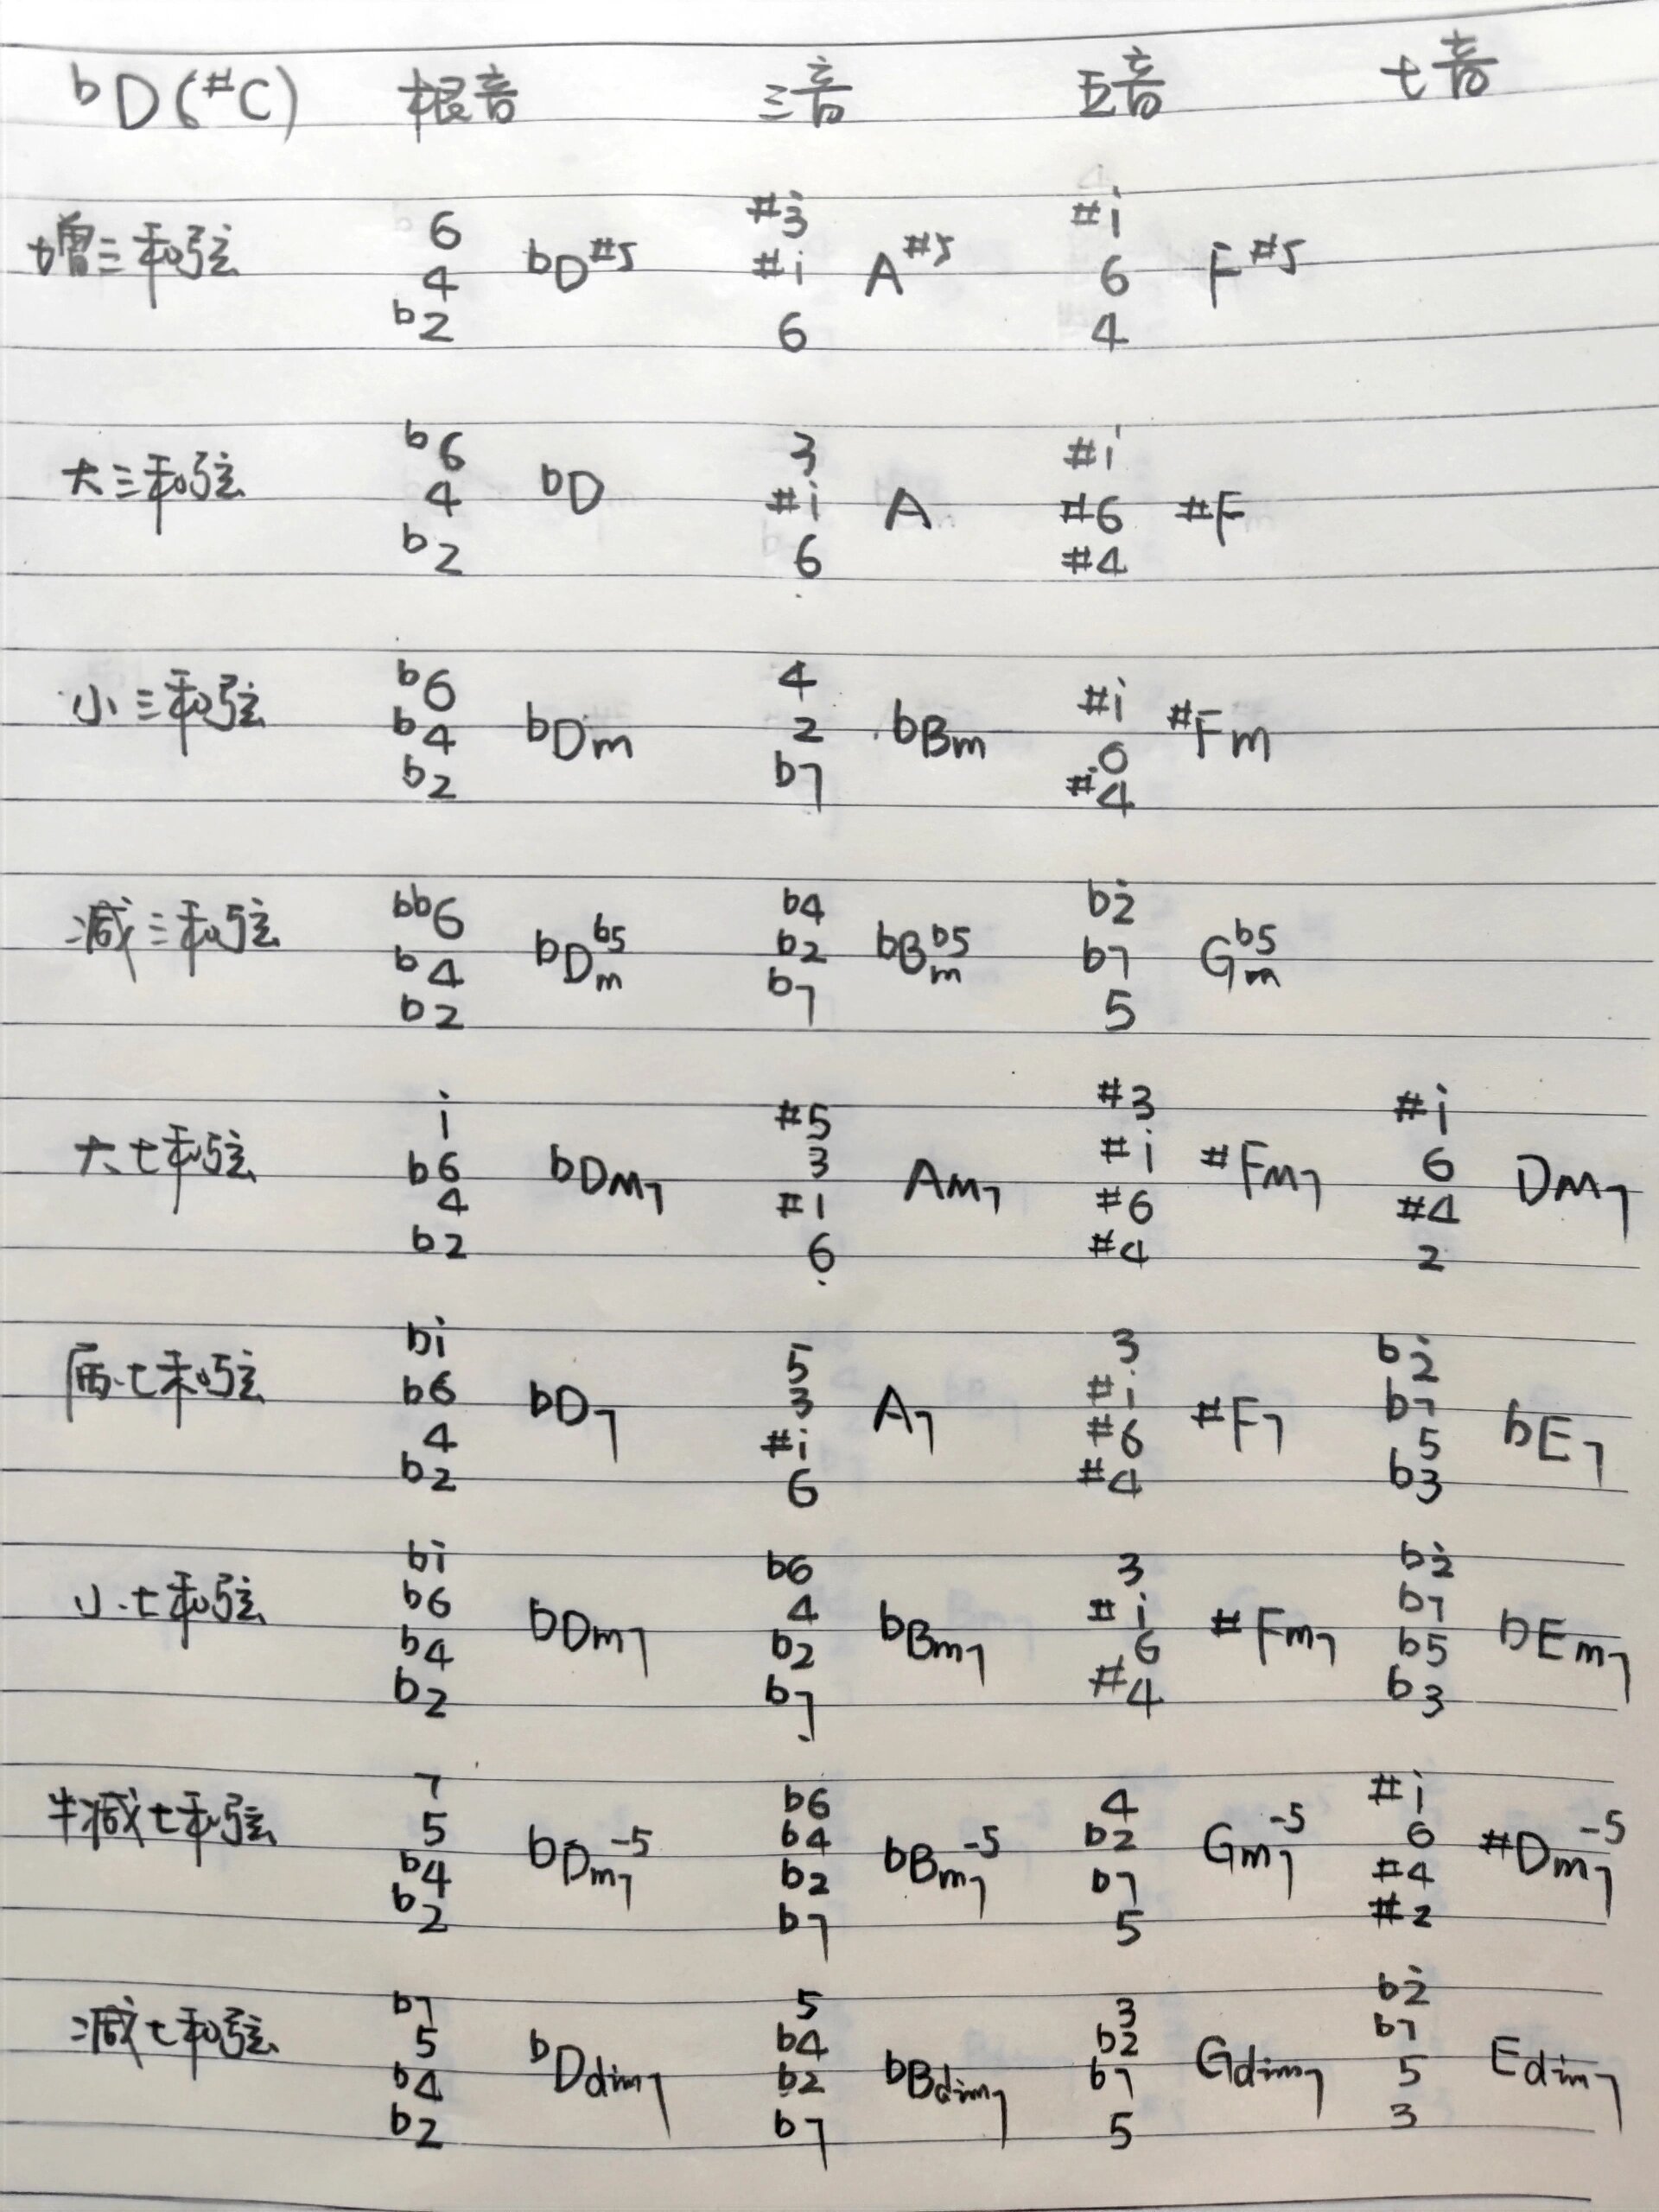 bD(#C) 根音 三音 五音 七音
#3 #i
增三和弦 6 bD#5 #i A#5 6 F#5
4 6 4
b2
b6 3 #i
大三和弦 4 bD #i A #6 #F
b2 6 #4
b6 4 #i
小三和弦 b4 bDm 2 bBm 6 #Fm
b2 b7 #4
bb6 b4 b2
减三和弦 b4 bDm b5 b2 bBm b5 b7 Gm b5
b2 b7 5
i #5 #3 #i
大七和弦 b6 bDM7 3 AM7 #i #FM7 6 DM7
4 #1 #6 #4
b2 6 #4 2
bi 5 3 b2
属七和弦 b6 bD7 3 A7 #i #F7 b7 bE7
4 #i #6 5
b2 6 #4 b3
bi b6 3 b2
小七和弦 b6 bDm7 4 bBm7 #i #Fm7 b7 bEm7
b4 b2 6 b5
b2 b7 #4 b3
7 b6 4 #i
半减七和弦 5 bDm7 -5 b4 bBm7 -5 b2 Gm7 -5 6 #Dm7 -5
b4 b2 b7 #4
b2 b7 5 #2
b7 5 3 b2
减七和弦 5 bDdim7 b4 bBdim7 b2 Gdim7 b7 Edim7
b4 b2 b7 5
b2 b7 5 3